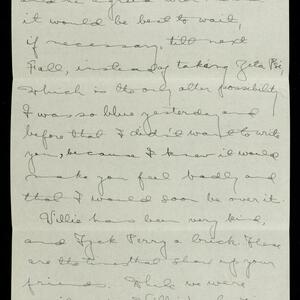 it would be best to wait,
if necessary, till next
Fall, instead of taking Zeta Psi,
which is the only other possibility
I was so blue yesterday and
before that I didn't want to write
you, because I knew it would
make you feel badly and
that I would soon be over it.
Billie has been very kind,
and Jack Perry a brick. These
are the times that show up your
friends. While we were